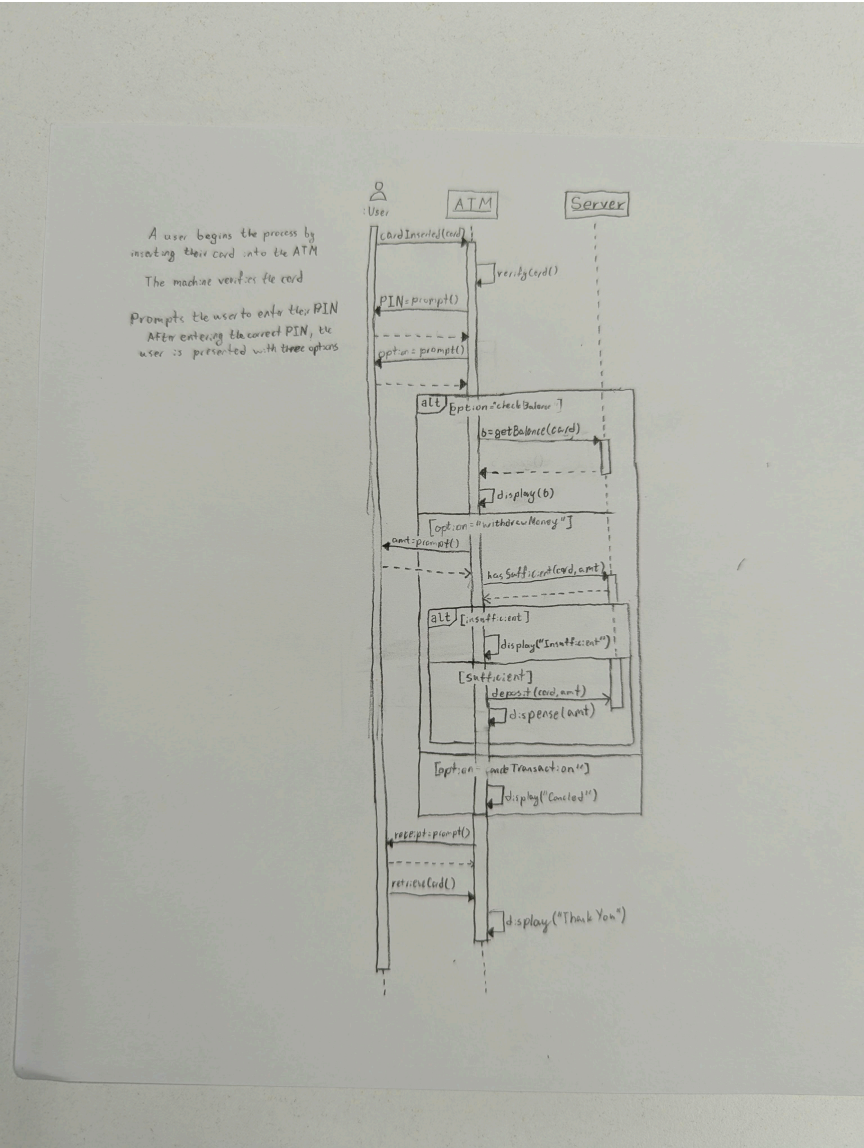 :User
ATM
Server
A user begins the process by
inserting their card into the ATM
The machine verifies the card
Prompts the user to enter their PIN
After entering the correct PIN, the
user is presented with three options
cardInserted(card)
verifyCard()
PIN=prompt()
option=prompt()
alt
[option="checkBalance"]
b=getBalance(card)
display(b)
[option="withdrawMoney"]
amt=prompt()
hasSufficient(card,amt)
alt
[insufficient]
display("Insufficient")
[Sufficient]
deposit(card,amt)
dispense(amt)
[option= Transaction"]
display("Cancled")
receipt=prompt()
retrieveCard()
display("Thank You")